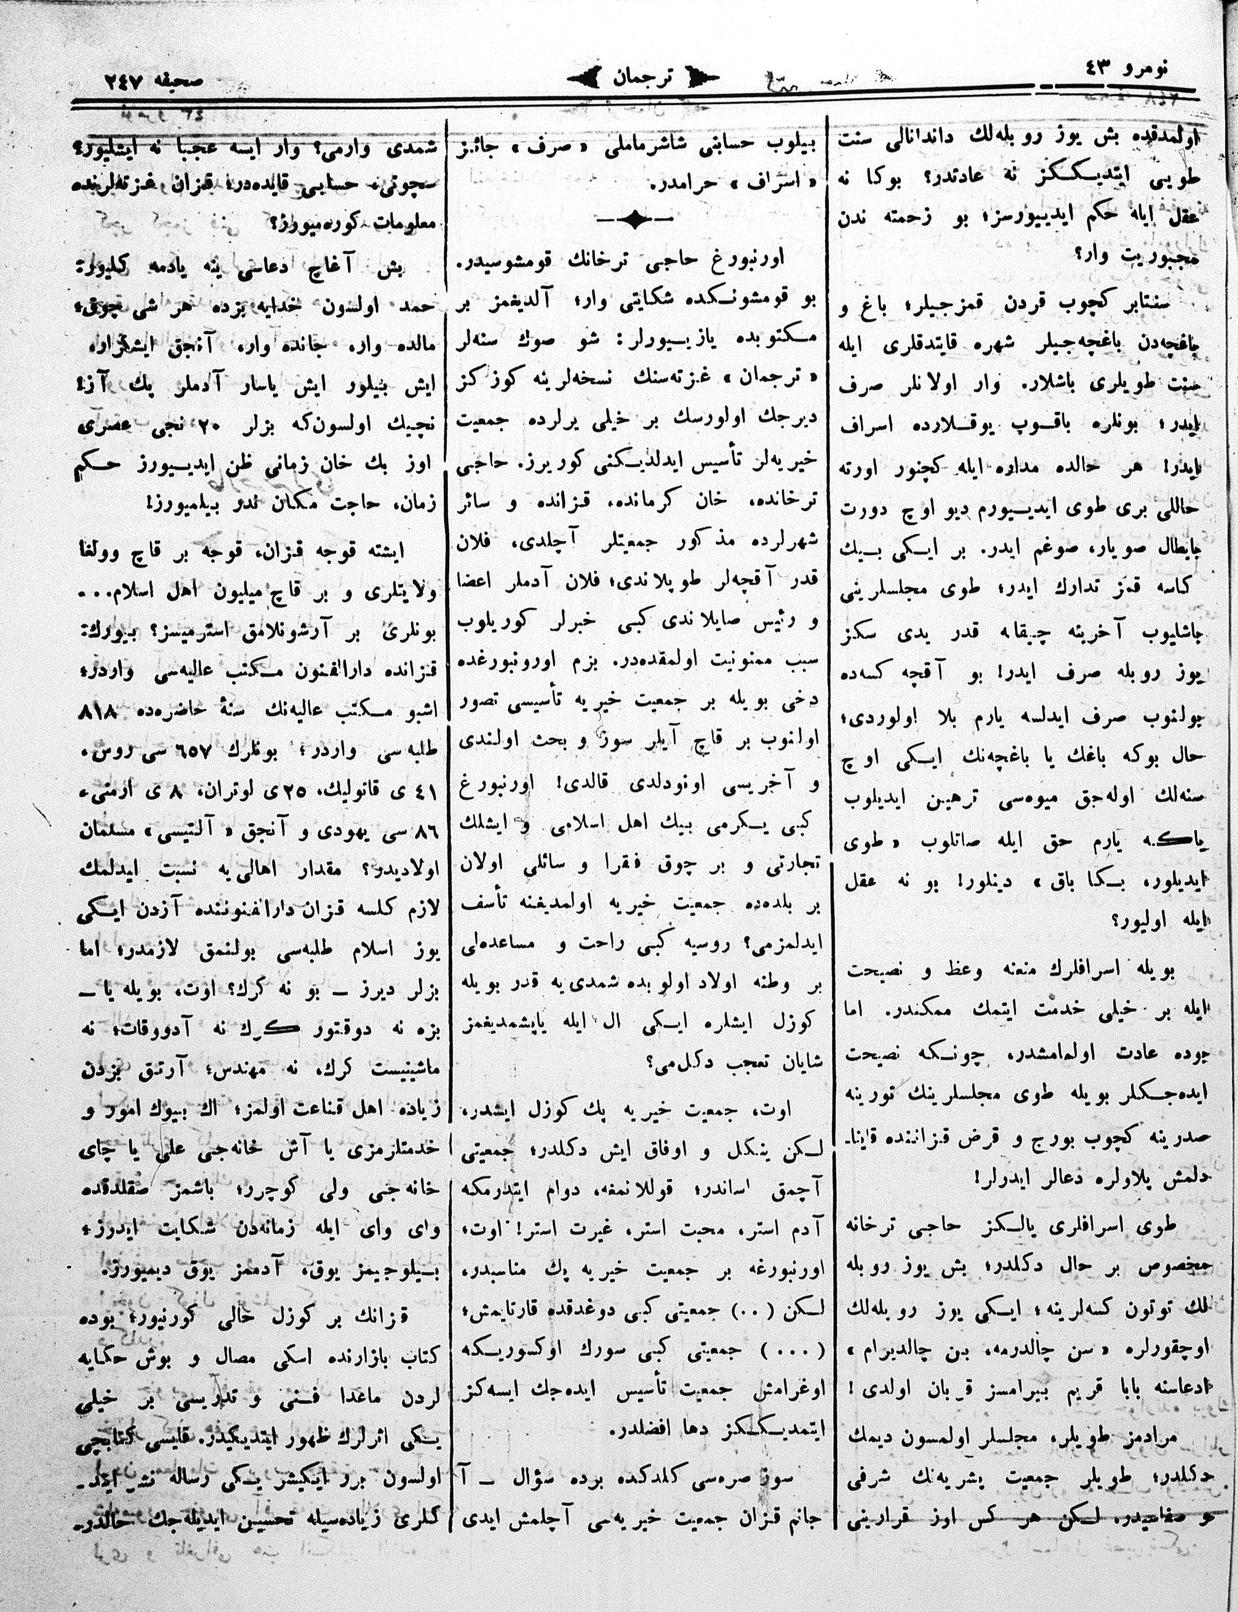 نومرو ٤٣
ترجمان
صحیفه ٢٤٧
اولمدقده بش یوز روبله‌لك داندانالی سنت
طویی ایتدیـكـكز نه عادتدر؟ بوكا نه
عقل ایله حكم ایدییورسز؛ بو زحمته ندن
مجبوریت وار؟
سنتابر كچوب قردن قمزجیلر؛ باغ و
باغچه‌دن باغچه‌جیلر شهره قایتدقلری ایله
سنت طویلری باشلار. وار اولانلر صرف
ایدر؛ بونلره باقـوپ یوقـلارده اسراف
ایدر! هر حالده مداره ایله كچنور اورته
حاللی بری طوی ایدیـیورم دیو اوچ دورت
جایطال صویار، صوغم ایدر. بر ایـكی بـیك
كاسه قمز تدارك ایدر؛ طوی مجلسلرینی
باشلیوب آخرینه چیقانه قدر یدی سكز
یوز روبله صرف ایدر! بو آقچه كسه‌ده
بولنوب صرف ایدلسه یارم بلا اولوردی؛
حال بوكه باغك یا باغچه‌نك ایـكی اوچ
سنه‌لك اوله‌جق میوه‌سی ترهین ایدیلوب
یاكه یارم حق ایله صاتلوب «طوی
ایدیلور، بـكا باق» دینلور! بو نه عقل
ایله اولیور؟
بویله اسرافلرك منعنه وعظ و نصیحت
ایله بر خیلی خدمت ایتمك ممكندر. اما
بوده عادت اولمامشدر، چونـكه نصیحت
ایده‌جـكلر بویله طوی مجلسلرینك تورینه
صدرینه كچوب بورج و قرض قزاننده قاینا-
دلمش پلاولره دعالر ایدرلر!
طوی اسرافلری یالـكز حاجی ترخانه
مخصوص بر حال دكلدر؛ بش یوز روبله
لك توتون كسه‌لرینه؛ ایـكی یوز روبله‌لك
اوچقورلره «سن چالدرمه، بن چالدیرام»
ادعاسنه بابا قریم بیرامسز قربان اولدی!
مرادمز طویلر، مجلسلر اولمسون دیمك
دكلدر؛ طویلر جمعیت بشریه‌نك شرفی
و صفاسیدر، لـكن هر كس اوز قرارینی
بیلوب حسابنی شاشرماملی «صرف» جائز
«اسراف» حرامدر.
اورنبورغ حاجی ترخانك قومشوسیدر.
بو قومشونـكده شكایتی وار؛ آلدیغمز بر
مـكتوبده یازیـیورلر: شو صوك سنه‌لر
«ترجمان» غزته‌سنك نسخه‌لرینه كوز كز
دیرجك اولورسك بر خیلی یرلرده جمعیت
خیریه‌لر تأسیس ایدلدیـكنی كوریرز. حاجی
ترخانده، خان كرمانده، قزانده و سائر
شهرلرده مذكور جمعیتلر آچلدی، فلان
قدر آقچه‌لر طوپلاندی؛ فلان آدملر اعضا
و رئیس صایلاندی كبی خبرلر كوریلوب
سبب ممنونیت اولمقده‌در. بزم اورونبورغده
دخی بویله بر جمعیت خیریه تأسیسی تصور
اولنوب بر قاچ آیلر سوز و بحث اولندی
و آخریسی اونودلدی قالدی! اورنبورغ
كبی یـكرمی بیك اهل اسلامی و ایشلك
تجارتی و بر چوق فقرا و سائلی اولان
بر بلده‌ده جمعیت خیریه اولمدیغنه تأسف
ایدلمزمی؟ روسیه كبی راحت و مساعده‌لی
بر وطنه اولاد اولوبده شمدی‌یه قدر بویله
كوزل ایشلره ایـكی ال ایله یاپشمدیغمز
شایان تعجب دكل‌می؟
اوت، جمعیت خیریه پك كوزل ایشدر،
لـكن ینكل و اوفاق ایش دكلدر؛ جمعیتی
آچمق اساندر؛ قوللانمغه، دوام ایتدرمكه
آدم استر، محبت استر، غیرت استر! اوت،
اورنبورغه بر جمعیت خیریه پك مناسبدر،
لـكن (..) جمعیتی كبی دوغدقده قارتایمش؛
(...) جمعیتی كبی سورك اوكسوریـكه
اوغرامش جمعیت تأسیس ایده‌جك ایسه‌كز
ایتمدیـكـكز دها افضلدر.
سوز صره‌سی كلدكده برده سؤال ــ آ
جانم قزان جمعیت خیریه‌سی آچلمش ایدی
شمدی وارمی؟ وار ایسه عجبا نه ایشلیور؟
سچوتی، حسابی قایده‌در؛ قزان غزته‌لرنده
معلومات كوره‌میورز؟
بش آغاچ دعاسی ینه یادمه كلیور:
حمد اولسون خدایه بزده هر شی چوق؛
مالده وار، جانده وار، آنجق ایشكزار،
ایش بیلور ایش یاسار آدملر پك آز!
نچیك اولسون‌كه بزلر ٢٠ نجی عصری
اوز بك خان زمانی ظن ایدیـیورز حـكم
زمان، حاجت مكان ندر بیلمیورز!
ایشته قوجه قزان، قوجه بر قاچ وولغا
ولایتلری و بر قاچ میلیون اهل اسلام...
بونلری بر آرشونلامق استرمیسز؟ بیورك:
قزانده دارالفنون مـكتب عالیه‌سی واردر؛
اشبو مـكتب عالیه‌نك سنۀ حاضره‌ده ٨١٨
طلبه‌سی واردر؛ بونلرك ٦٥٧ سی روس،
٤١ ی قاتولیك، ٢٥ ی لوتران، ٨ ی ارمنی،
٨٦ سی یهودی و آنجق «آلتیسی» مسلمان
اولادیدر؟ مقدار اهالی‌یه نسبت ایدلمك
لازم كلسه قزان دارالفنوننده آزدن ایـكی
یوز اسلام طلبه‌سی بولنمق لازمدر؛ اما
بزلر دیرز ــ بو نه كرك؟ اوت، بویله یا ــ
بزه نه دوقتور كرك نه آدووقات؛ نه
ماشینیست كرك، نه مهندس؛ آرتق بزدن
زیاده اهل قناعت اولمز؛ اك بیوك امور و
خدمتلرمزی یا آش خانه‌جی علی یا چای
خانه‌جی ولی كوچرر؛ باشمز صقلدقده
وای وای ایله زمانه‌دن شكایت ایدرز؛
بـیلوجیمز یوق، آدممز یوق دیمیورز.
قزانك بر كوزل حالی كورنیور؛ بوده
كتاب بازارنده اسكی مصال و بوش حكایه
لردن ماعدا فـنی و تدریسی بر خیلی
یـكی اثرلرك ظهور ایتدیكیدر. قایسی كتابچی
اولسون برر ایكیشر یـكی رساله نشر ایتد-
كلری زیاده‌سیله تحسین ایدیله‌جك حالدر.